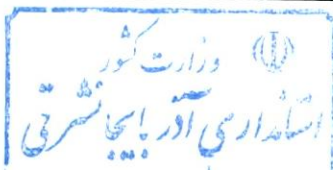 وزارت کشور
استانداری آذربایجانشرقی